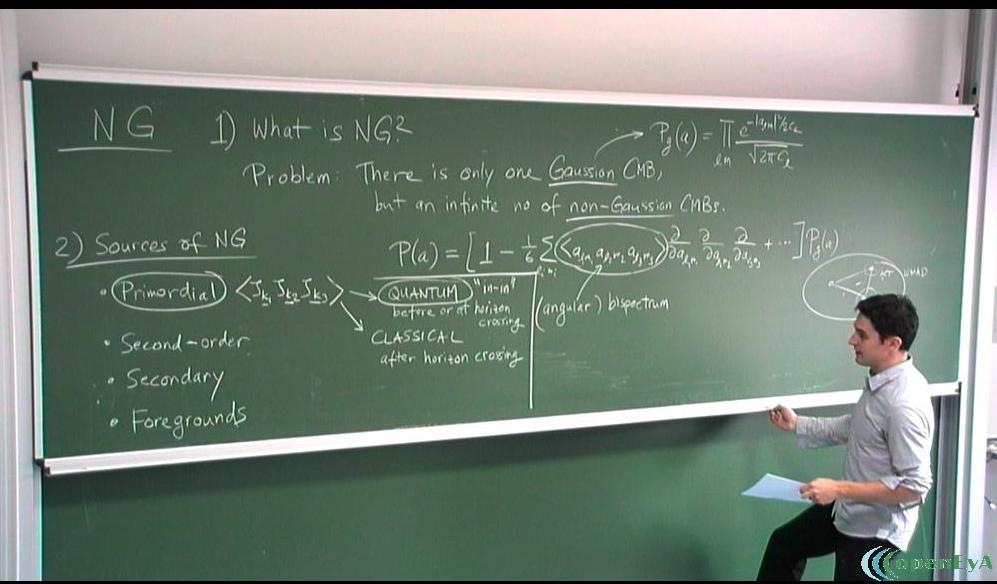 NG 1) What is NG?
P_g(a) = ∏_{lm} e^{-|a_{lm}|²/2C_l} / √(2πC_l)
Problem: There is only one Gaussian CMB,
but an infinite no of non-Gaussian CMBs.
2) Sources of NG
P(a) = [1 - 1/6 ∑ <a_{l₁m₁} a_{l₂m₂} a_{l₃m₃}> ∂/∂a_{l₁m₁} ∂/∂a_{l₂m₂} ∂/∂a_{l₃m₃} + ...] P_g(a)
(angular) bispectrum
• Primordial <ζ_{k₁} ζ_{k₂} ζ_{k₃}>
QUANTUM "in-in"
before or at horizon
crossing
CLASSICAL
after horizon crossing
• Second-order
• Secondary
• Foregrounds
openEyA